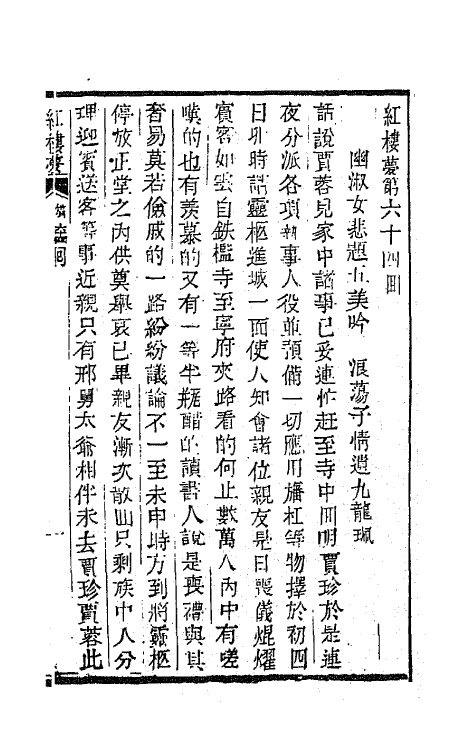 紅樓夢第六十四回
幽淑女悲題五美吟　浪蕩子情遺九龍珮
話說賈蓉見家中諸事已妥連忙赶至寺中回明賈珍於是連
夜分派各項執事人役並預備一切應用旛杠等物擇於初四
日卯時請靈柩進城一面使人知會諸位親友是日喪儀焜燿
賓客如雲自鉄檻寺至寧府夾路看的何止數萬人內中有嗟
嘆的也有羨慕的又有一等半瓶醋的讀書人說是喪禮與其
奢易莫若儉戚的一路紛紛議論不一至未申時方到將靈柩
停放正堂之內供奠舉哀已畢親友漸次散囬只剩族中人分
理迎賓送客等事近親只有邢舅太爺相伴未去賈珍賈蓉此
紅樓夢
一